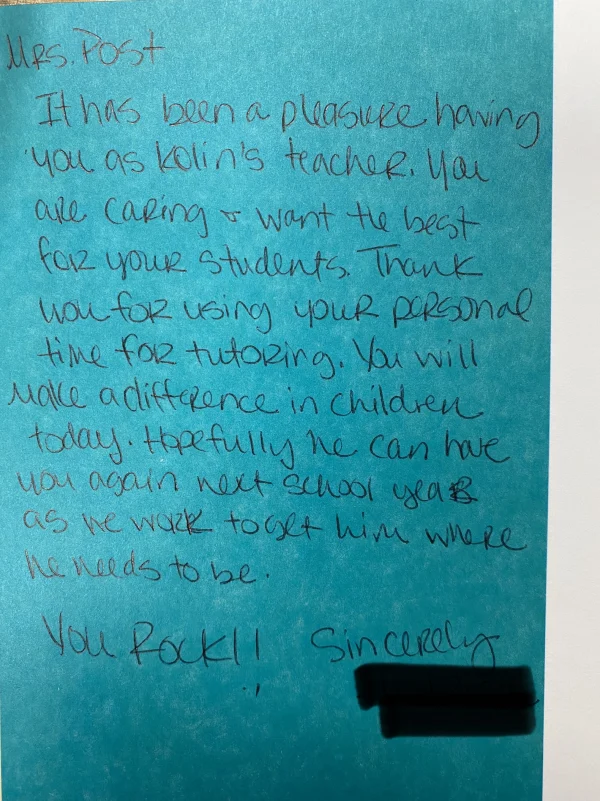 Mrs. Post
It has been a pleasure having
you as Kolin's teacher. You
are caring & want the best
for your students. Thank
you for using your personal
time for tutoring. You will
make a difference in children
today. Hopefully he can have
you again next school year
as we work to get him where
he needs to be.
You Rock!! Sincerely